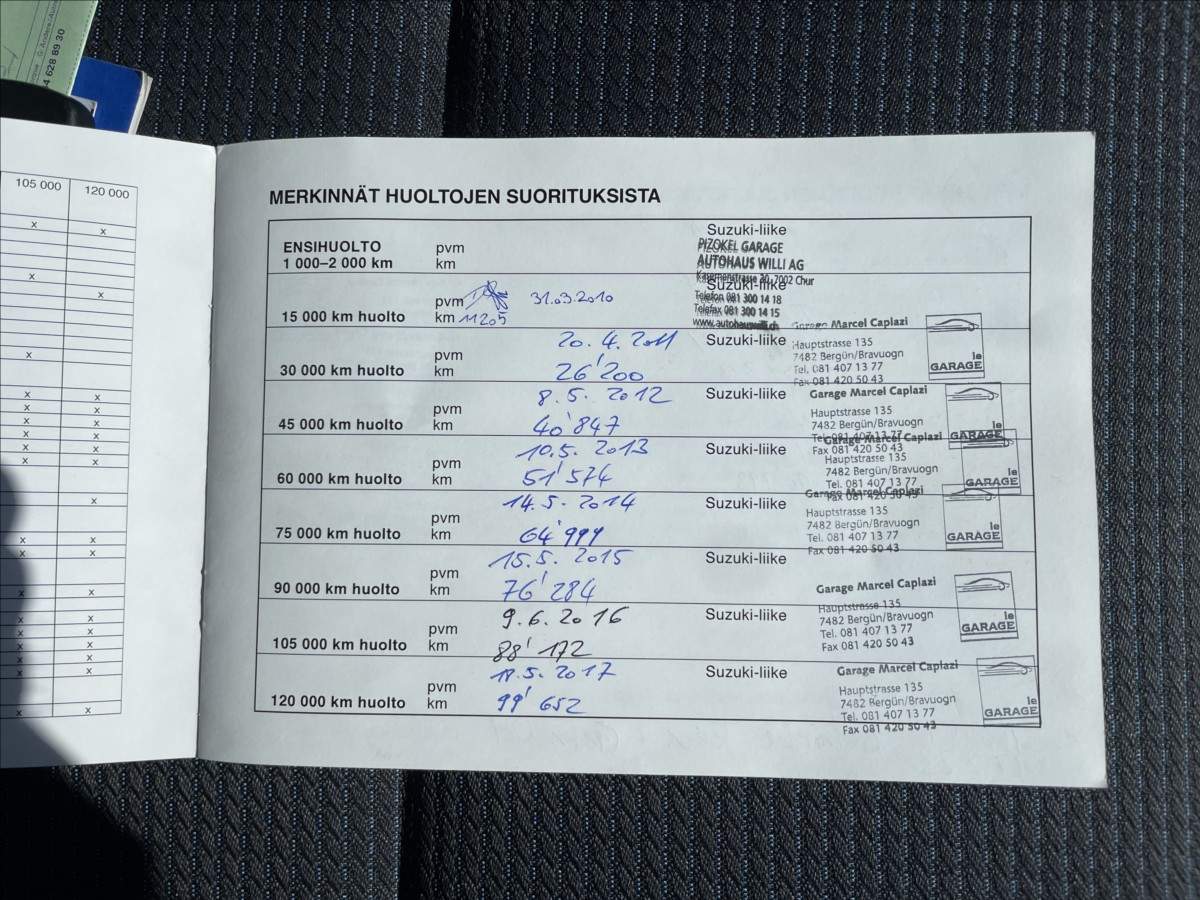 4 628 89 30
105 000 120 000
x x
x
x
x
x x
x x
x x
x x
x x
x x
x
x x
x x
x x
x x
x x
x x
x x
x x
x x
MERKINNÄT HUOLTOJEN SUORITUKSISTA
ENSIHUOLTO
1 000–2 000 km
pvm
km
Suzuki-liike
PIZOKEL GARAGE
AUTOHAUS WILLI AG
Kasernenstrasse 30, 7002 Chur
Telefon 081 300 14 18
Telefax 081 300 14 15
www.autohauswilli.ch
15 000 km huolto
pvm 31.03.2010
km 11205
Suzuki-liike
30 000 km huolto
pvm 20. 4. 2011
km 26'200
Suzuki-liike
Garage Marcel Caplazi
Hauptstrasse 135
7482 Bergün/Bravuogn
Tel. 081 407 13 77
Fax 081 420 50 43
le
GARAGE
45 000 km huolto
pvm 8. 5. 2012
km 40'847
Suzuki-liike
Garage Marcel Caplazi
Hauptstrasse 135
7482 Bergün/Bravuogn
Tel. 081 407 13 77
Fax 081 420 50 43
le
GARAGE
60 000 km huolto
pvm 10.5. 2013
km 51'574
Suzuki-liike
Garage Marcel Caplazi
Hauptstrasse 135
7482 Bergün/Bravuogn
Tel. 081 407 13 77
Fax 081 420 50 43
le
GARAGE
75 000 km huolto
pvm 14.5. 2014
km 64'999
Suzuki-liike
Garage Marcel Caplazi
Hauptstrasse 135
7482 Bergün/Bravuogn
Tel. 081 407 13 77
Fax 081 420 50 43
le
GARAGE
90 000 km huolto
pvm 15.5. 2015
km 76'284
Suzuki-liike
Garage Marcel Caplazi
Hauptstrasse 135
7482 Bergün/Bravuogn
Tel. 081 407 13 77
Fax 081 420 50 43
le
GARAGE
105 000 km huolto
pvm 9.6. 2016
km 88'172
Suzuki-liike
120 000 km huolto
pvm 18.5. 2017
km 99'652
Suzuki-liike
Garage Marcel Caplazi
Hauptstrasse 135
7482 Bergün/Bravuogn
Tel. 081 407 13 77
Fax 081 420 50 43
le
GARAGE